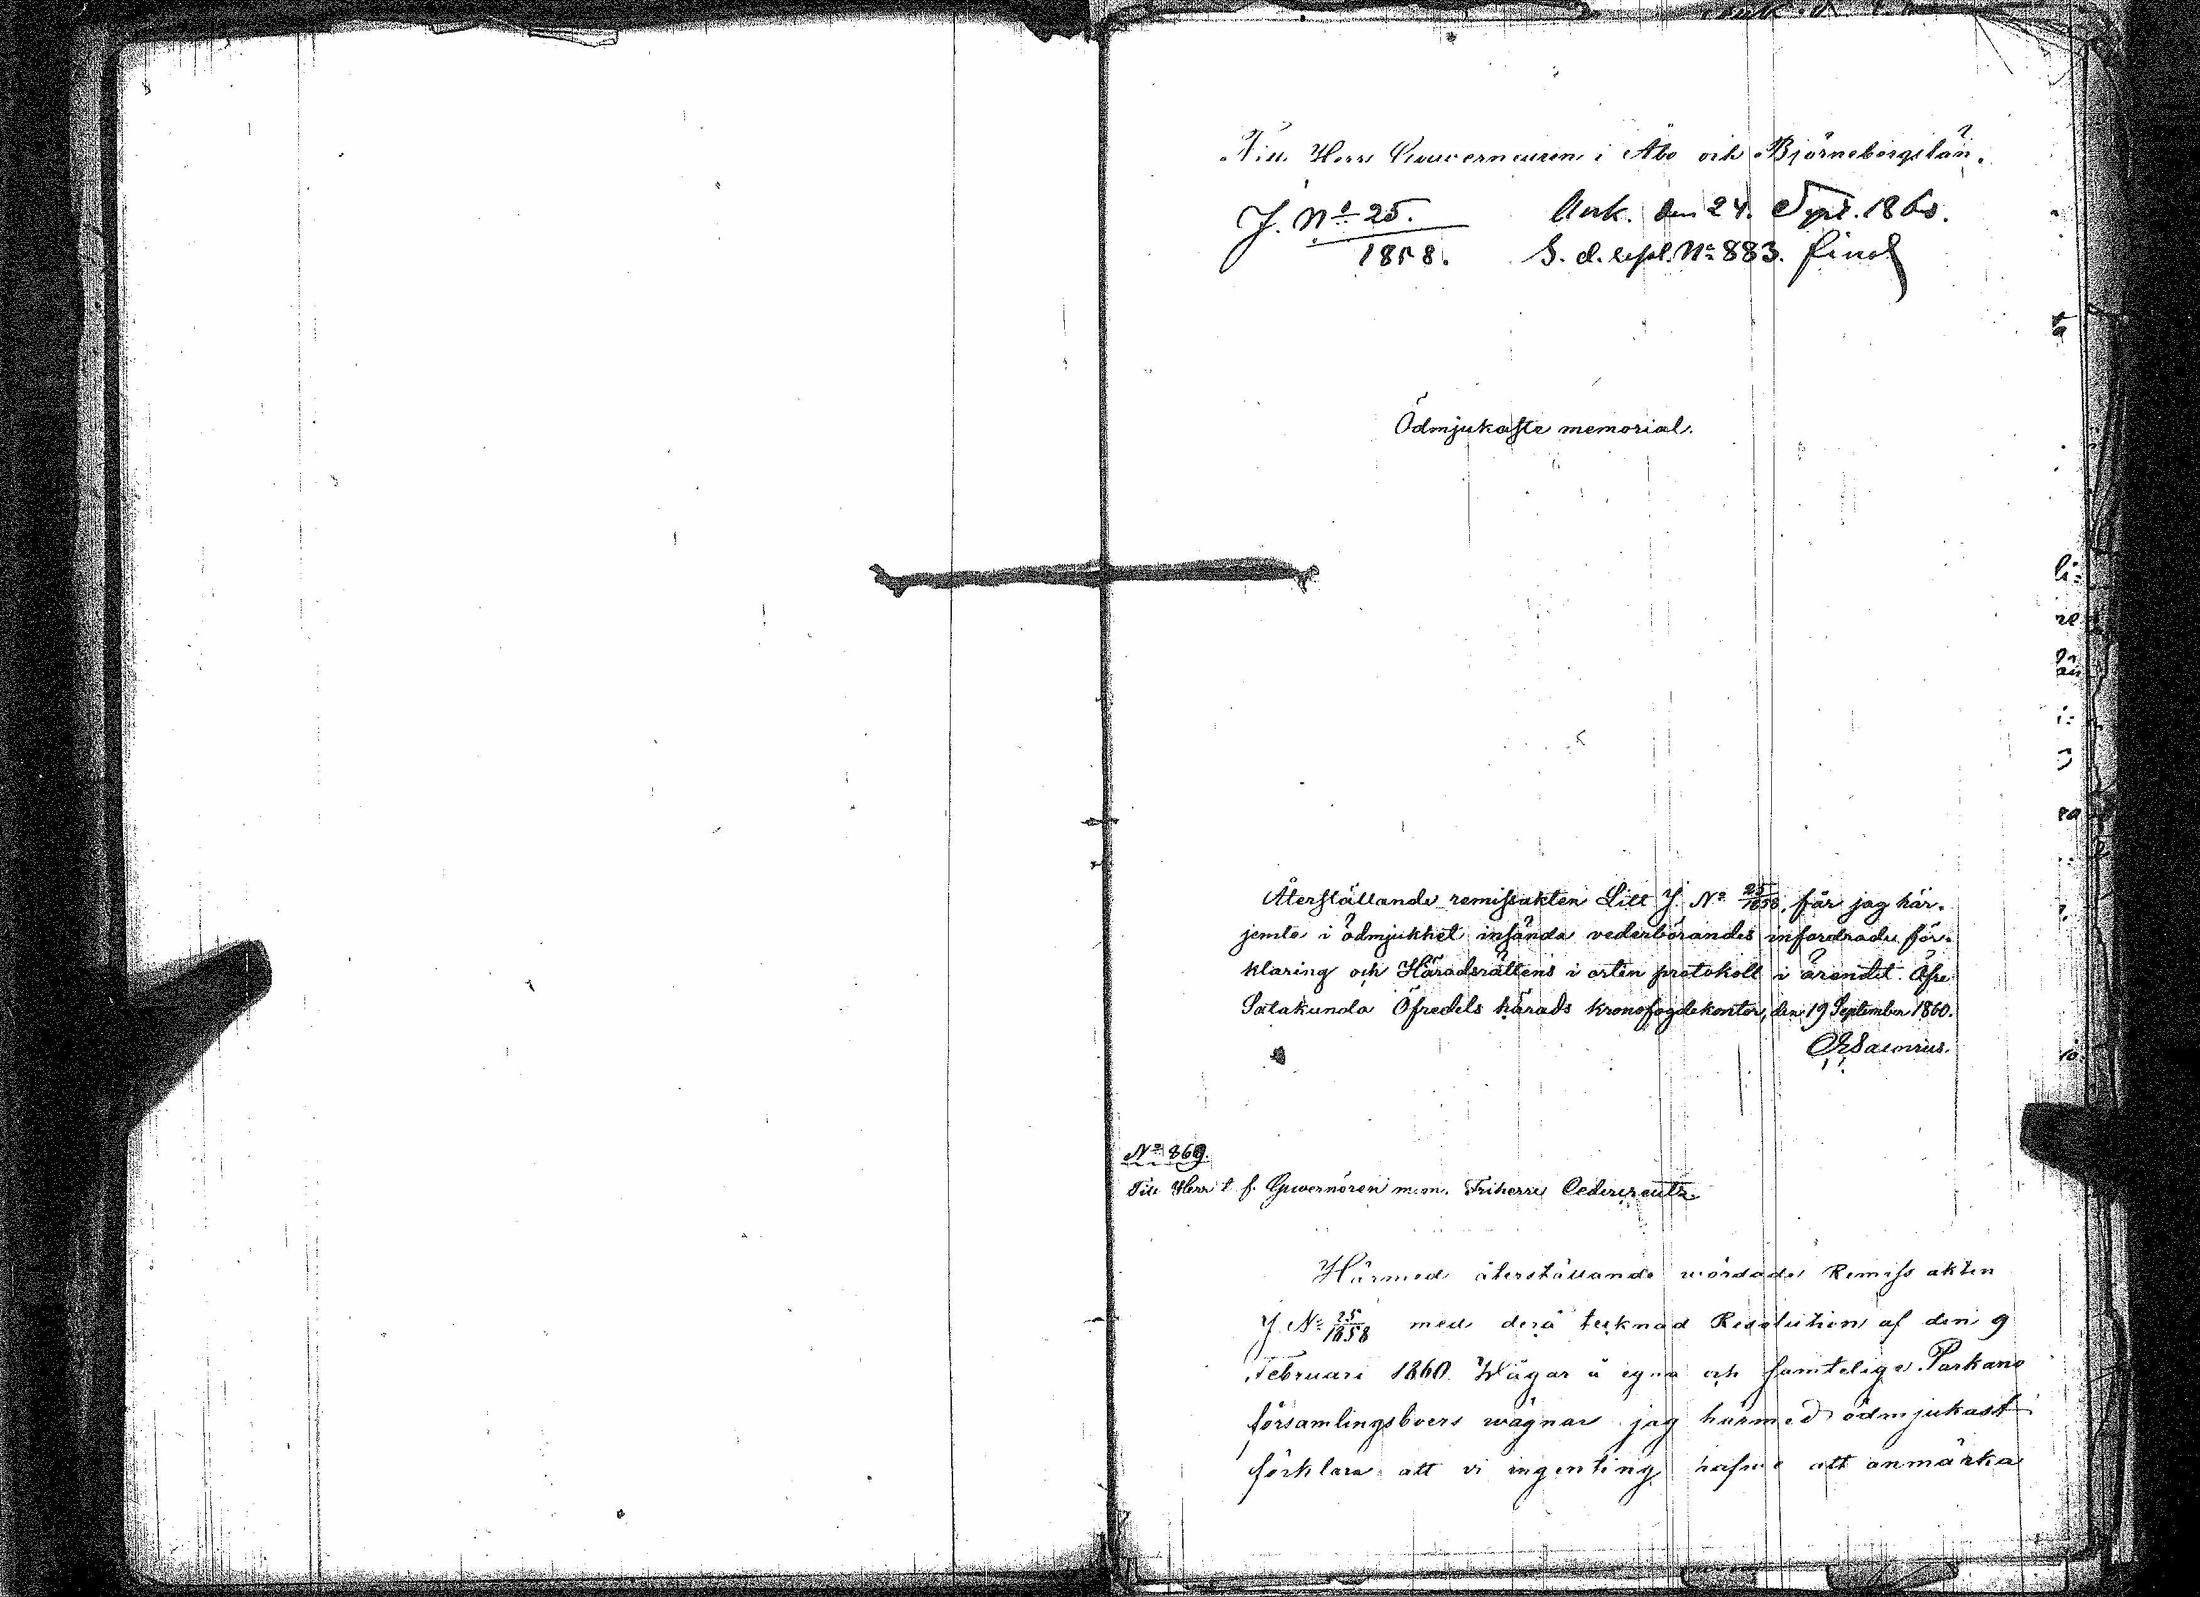 Till Herr Gouverneuren i Åbo och Björneborgs län.
J. No 25. Ank. den 24. Sept. 1860.
1858. S. d. expl. No 883.
Ödmjukaste memorial.
Återställande remissakten Litt J. No 25/1858, får jag här-
jemte i ödmjukhet insända vederbörandes infordrade för-
klaring och Häradsrättens i orten protokoll i ärendet. Öfre
Satakunda Öfredels härads kronofogdekontor, den 19 September 1860.
No 869.
Till Herr t. f. Guvernören m. m. Friherre Cedercreutz.
Härmed återställande wördade Remiss akten
J. No 25/1858 med derå tecknad Resolution af den 9
Februari 1860. Wågar å egna och samtelige Parkano
församlingsboers wägnar jag härmed ödmjukast
förklara att vi ingenting hafwe att anmärka